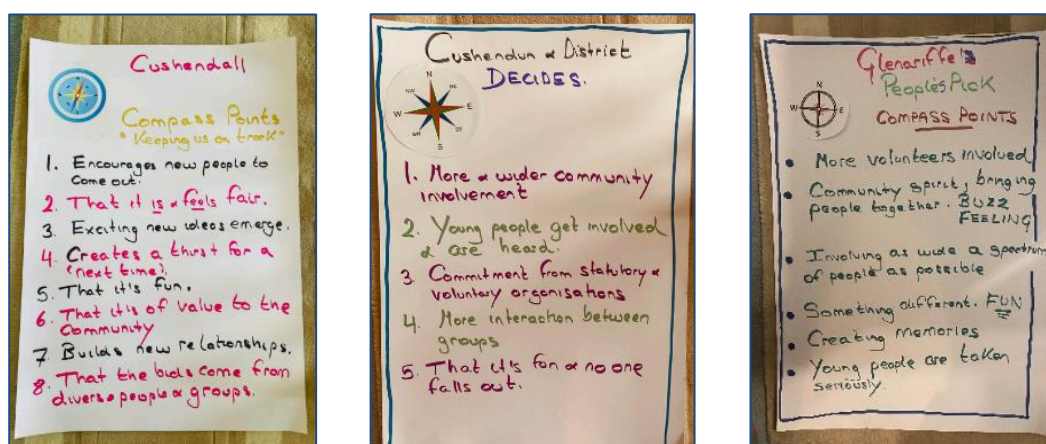 Cushendall
Compass Points
"Keeping us on track"
1. Encourages new people to
come out.
2. That it is & feels fair.
3. Exciting new ideas emerge.
4. Creates a thirst for a
(next time).
5. That it's fun.
6. That it is of value to the
Community
7. Builds new relationships.
8. That the bids come from
diverse people & groups.
Cushendun & District
DECIDES.
N
W E
S
1. More & wider community
involvement
2. Young people get involved
& are heard.
3. Commitment from statutory &
voluntary organisations
4. More interaction between
groups
5. That it's fun & no one
falls out.
Glenariffe's
People's Pick
COMPASS POINTS
N
W E
S
• More volunteers involved
• Community spirit, bringing
people together. BUZZ
FEELING
• Involving as wide a spectrum
of people as possible
• Something different. FUN
• Creating memories
• Young people are taken
seriously.